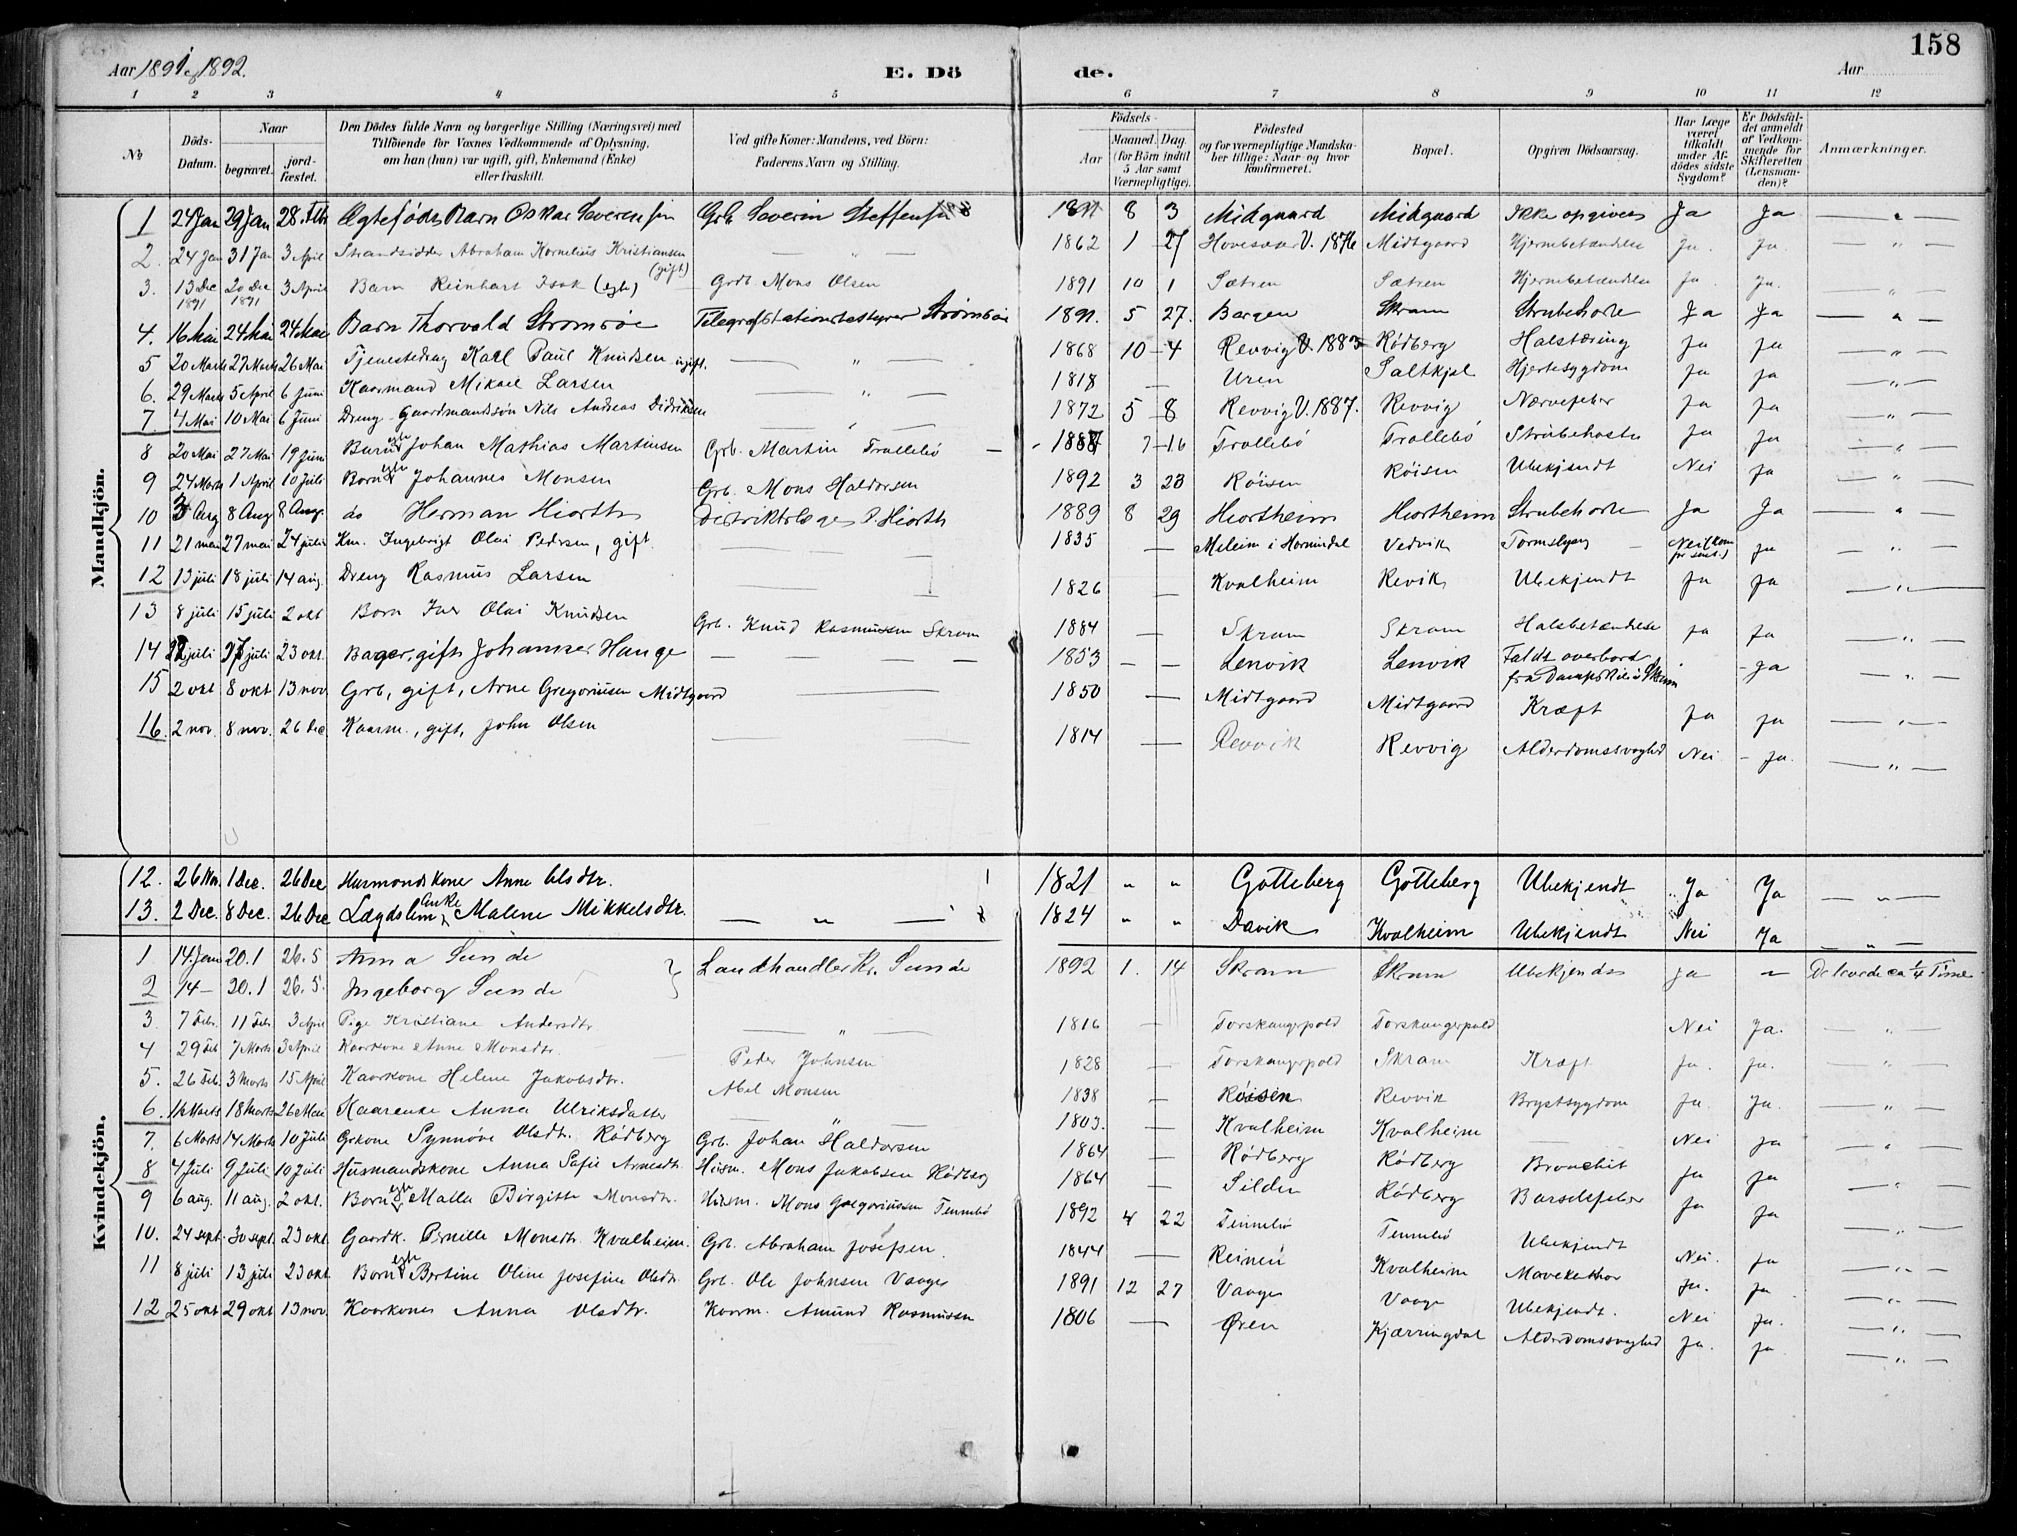 158
Aar 1891 og 1892. E. Dö de. Aar
1 2 3 4 5 6 7 8 9 10 11 12
№ Döds-Datum. Naar begravet. jord-fæstet. Den Dödes fulde Navn og borgerlige Stilling (Næringsvei) med Tilföiende for Voxnes Vedkommende af Oplysning, om han (hun) var ugift, gift, Enkemand (Enke) eller fraskilt. Ved gifte Koner: Mandens, ved Börn: Faderens Navn og Stilling. Födsels- Aar Maaned. Dag. (for Börn indtil 5 Aar samt Værnepligtige). Födested og for værnepligtige Mandska-ber tillige: Naar og hvor konfirmeret. Bopæl. Opgiven Dödsaarsag. Har Læge været tilkaldt under Af-dödes sidste Sygdom? Er Dödsfal-det anmeldt af Vedkom-mende for Skifteretten (Lensman-den)? Anmærkninger.
Mandkjön.
1 24 Jan 29 Jan 28. Feb Ægtefødt Barn Oskar Severinsen Grb. Severin Steffensen 8 3 Midgaard Midgaard Ikke opgivet Ja Ja — " —
2. 24 Jan 31 Jan 3 April Strandsidder Abraham Kornelius Kristiansen (gift) — " — 1862 1 27 V. 1876 Midtgaard Hjernebetændelse Ja. Ja — " —
3. 13 Dec 1891 20 Dec 1891 3 April Barn Reinhart Isak (egte) Grdb. Mons Olsen 1891 10 1 Sætren Sætren Hjernebetændelse Ja. Ja. — " —
4. 16 Mai 24 Mai 24 Mai Barn Thorvald Strømsøe Telegrafstationsbestyrer Strømsøe 5 27. Bergen Skram Strubehoste Ja Ja — " —
5 20 Marts 27 Marts 26 Mai Tjenestedreng Karl Paul Knudsen ugift. — " — 1868 10 4 Revvig V. 1883 Rödberg Halstæring Ja Ja — " —
6. 29 Marts 5 April 6 Juni Kaarmand Mikael Larsen — " — 1818 — Uren Saltkjel Hjertesygdom Ja Ja — " —
7. 4 Mai 10 Mai 6 Juni Dreng Gaardmandssøn Nils Andreas Didriksen — " — 1872 5 8 Revvig V. 1887. Revvig Nervefeber Ja Ja — " —
8 20 Mai 27 Mai 19 Juni Barn egte Johan Mathias Martinsen Grb. Martin Trollebö — 7 16 Trollebö Trollebö Strubehoste Ja Ja — " —
9 24 Marts 1 April 10 Juli Barn egte Johannes Monsen Grb. Mons Haldorsen 1892 3 23 Röisen Röisen Ubekjendt Nei Ja — " —
10 3 Aug 8 Aug 8 Aug. do Herman Hiorth Distriktslæge P Hiorth 1889 8 29 Hiortheim Hiortheim Strubehoste Ja Ja — " —
11 21 mai 27 mai 24 juli Km. Ingebrigt Olai Pedersen, gift. — 1835 — i Hornindal Vedvik Nei (kom for sent.) Ja — " —
12 13 juli 18 juli 14 aug. Dreng Rasmus Larsen — 1826 — Kvalheim Revik Ubekjendt Ja Ja — " —
13 8 juli 15 juli 2 okt Barn Iver Olai Knudsen Grb. Knud Rasmussen Skram 1884 — Skram Skram Halsbetændelse Ja Ja — " —
14 juli juli 23 okt. Bager, gift Johannes Hauge — — — 1853 — — Lenvik Lenvik Faldt overbord fra Dampskib i Skram - Ja — " —
15 2 okt 8 okt 13 nov. Grb, gift, Arne Gregoriusen Midtgaard — 1850 — Midtgaard Midtgaard Kræft Ja Ja — " —
16. 2 nov. 8 nov. 26 Dec Kaarm., gift, John Olsen — 1814 — Revvik Revvig Alderdomssvaghed Nei - Ja. — " —
12. 26 Nov. 1 Dec. 26 Dec Husmandskone Anne Olsdtr. 1821 " " Gotteberg Gotteberg Ubekjendt Ja Ja — " —
13. 2 Dec. 8 Dec. 26 Dec Lægdslem Enke Malene Mikkelsdtr. — " — 1824 " " Davik Kvalheim Ubekjendt Nei Ja — " —
Kvindekjön.
1 14. Jan 20. 1 26. 5 Anna Sunde } Landhandler Kr. Sunde 1892 1. 14 Skram Skram Ubekjendt Ja — De levede ca ¼ Time
2 14 — 20. 1 26. 5. Ingeborg Sunde
3. 7 Febr. 11 Febr 3 April Pige Kristiane Andersdtr. — " — 1816 — Torskangerpold Torskangerpold Nei Ja. — " —
4 29 Feb 7 Marts 3 April Kaarkone Anne Monsdtr. Peder Johnsen 1828 Torskangerpold Skram Kræft Ja. Ja. — " —
5. 26 Feb. 3 Marts 15 April Kaarkone Helene Jakobsdtr. Abel Monsen 1838 — Röisen Revvik Brystsygdom Ja. Ja. — " —
6. Marts 18 Marts 26 Mai Kaarenke Anna Ulriksdatter — 1803. — Kvalheim Kvalheim — Nei Ja — " —
7. 6 Marts 14 Marts 10 Juli Grkone Synnöve Olsdtr. Rödberg Grb. Johan Haldorsen 1864 — Rödberg Rödberg Bronchit Ja Ja — " —
8 4 Juli 9 Juli 10 Juli Husmandskone Anna Sofie Arnesdtr. Husm. Mons Jakobsen Rödberg 1864 — Silden Rödberg Barselfeber Ja Ja — " —
9 6 aug. 11 aug. 2 okt. Barn egte Malla Birgitte Monsdtr. Husm. Mons Gregoriussen Tennebö 1892 4 22 Tennebö Tennebö Ubekjendt Nei. Ja — " —
10. 24 sept. 30 sept. 23 okt. Gaardk. Pernille Monsdtr. Kvalheim. Grb. Abraham Josefsen. 1844 — Reinen Kvalheim Ja. Ja — " —
11 8 juli 13 juli 23 okt Barn egte Bertine Oline Josefine Olsdtr. Grb. Ole Johnsen Vaage 1891 12 27 Vaage Vaage Ubekjendt. Nei Ja. — " —
12 25 okt 29 okt 13 nov. Kaarkone Anna Olsdtr. Kaarm. Amund Rasmussen 1806 — Øren Kjærringdal Alderdomssvaghed Ja. Ja — " —